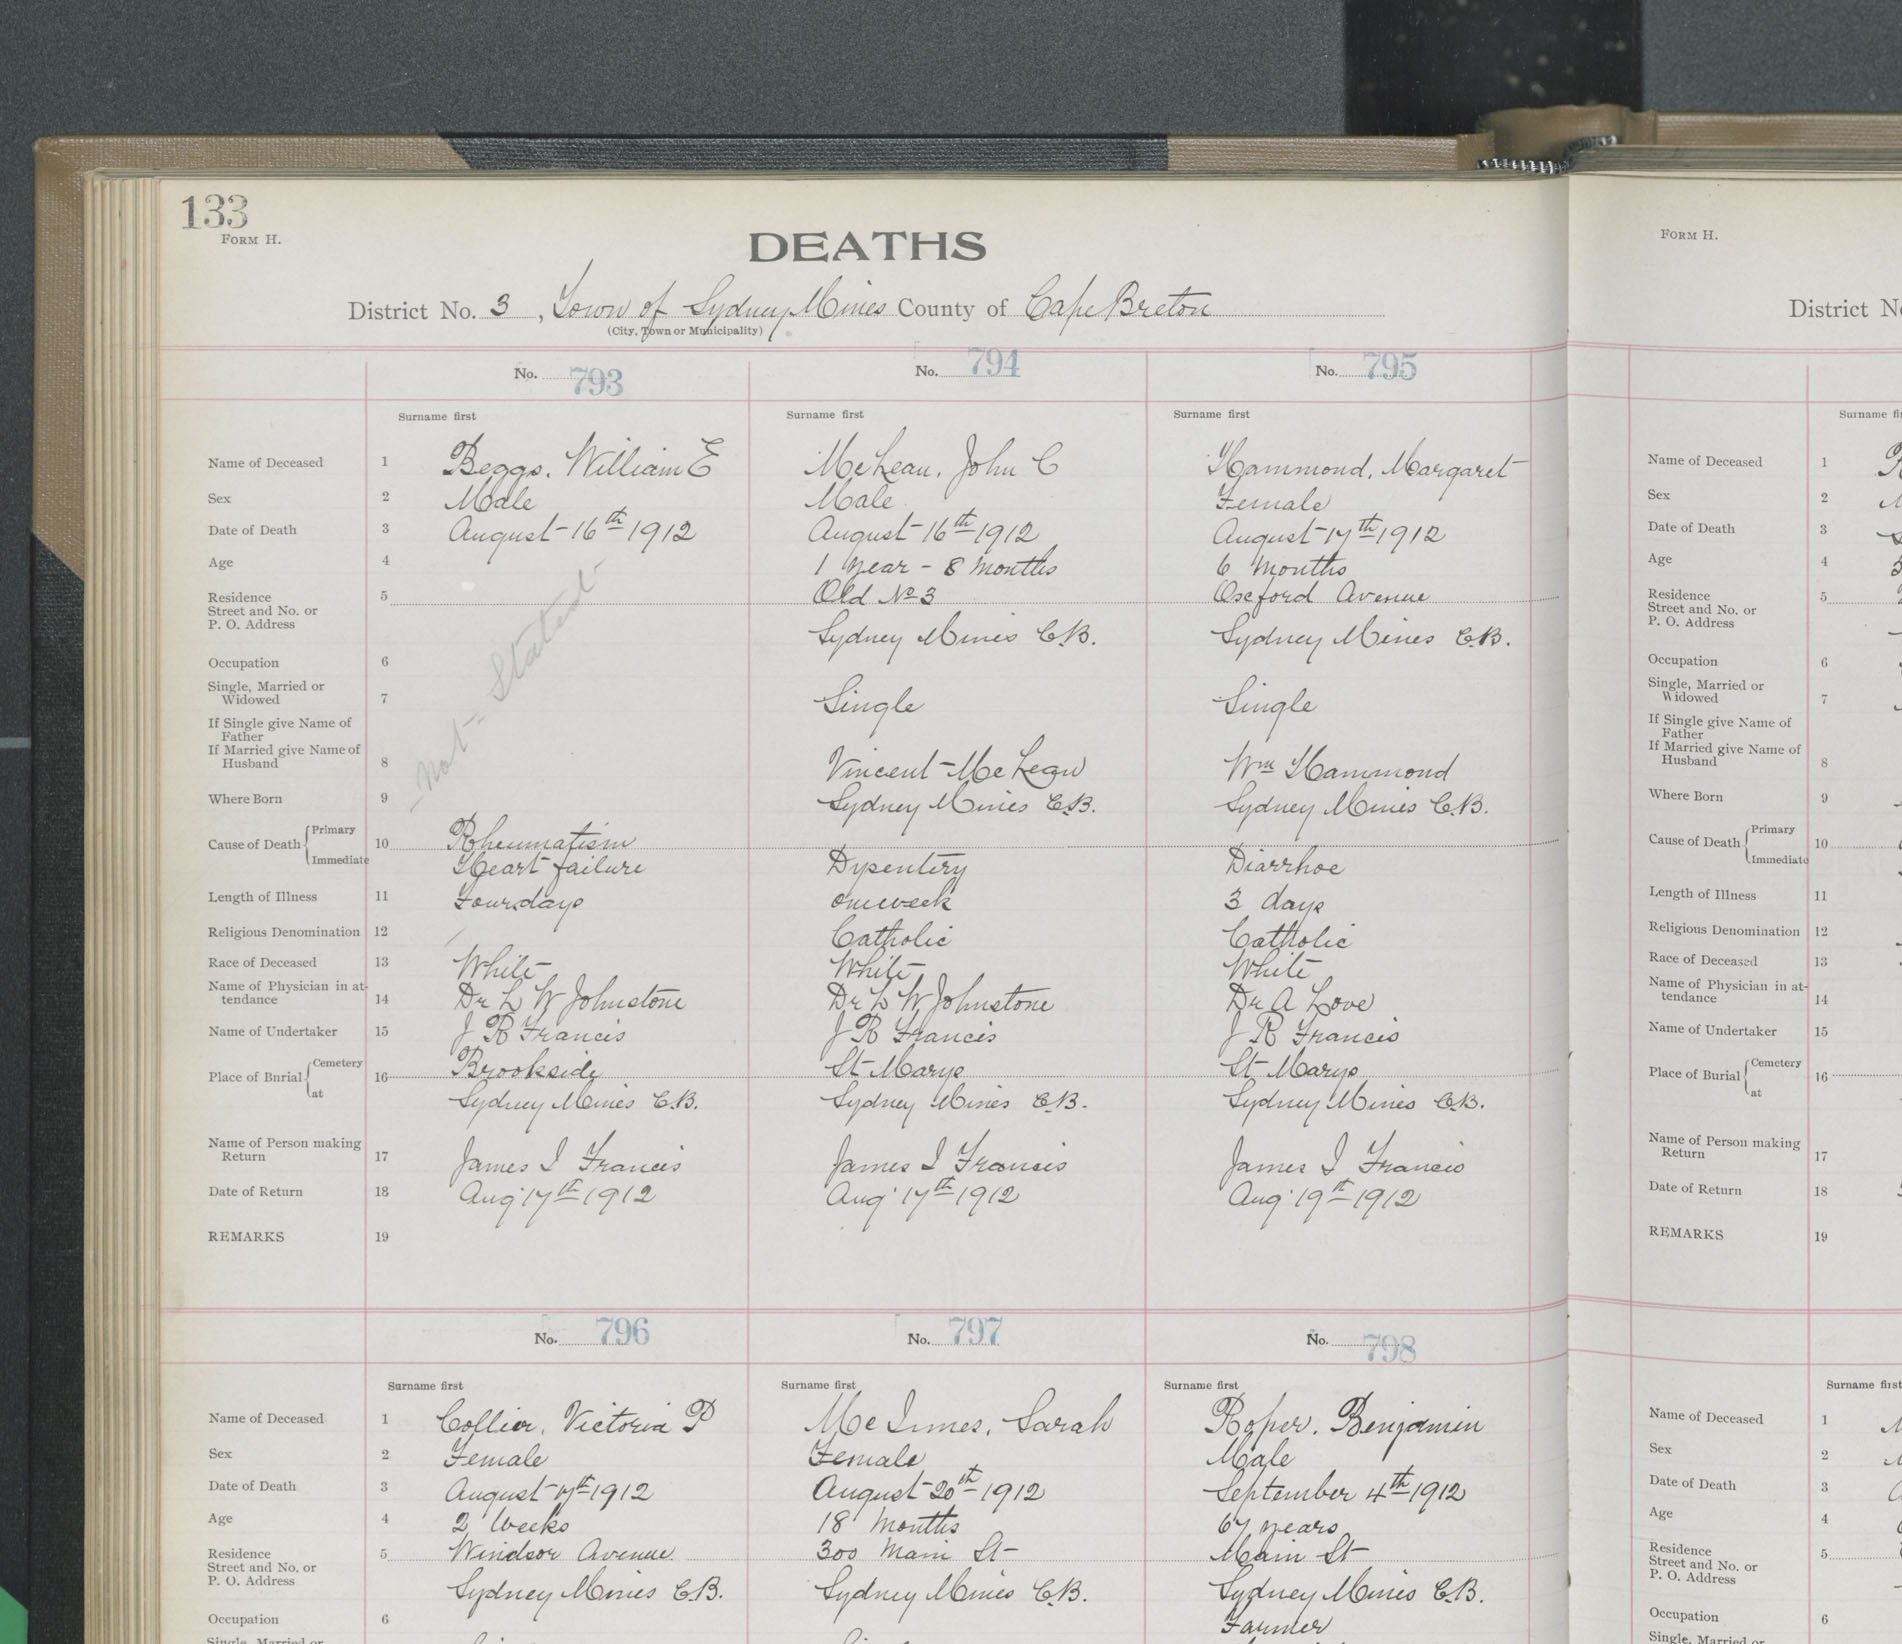 133
FORM H.
DEATHS
District No. 3, Town of Sydney Mines County of Cape Breton
(City, Town or Municipality)
No. 793 No. 794 No. 795
Surname first Surname first Surname first
Name of Deceased 1 Beggs, William E McLean, John C Hammond, Margaret
Sex 2 Male Male Female
Date of Death 3 August 16th 1912 August 16th 1912 August 17th 1912
Age 4 1 year - 8 months 6 months
Residence 5 Old No 3 Oxford Avenue
Street and No. or
P. O. Address Sydney Mines C.B. Sydney Mines C.B.
- Not - Stated -
Occupation 6
Single, Married or
Widowed 7 Single Single
If Single give Name of
Father
If Married give Name of
Husband 8 Vincent McLean Wm Hammond
Where Born 9 Sydney Mines C.B. Sydney Mines C.B.
Cause of Death Primary 10 Rheumatism
Immediate Heart failure Dysentery Diarrhoe
Length of Illness 11 Four days one week 3 days
Religious Denomination 12 Catholic Catholic
Race of Deceased 13 White White White
Name of Physician in at-
tendance 14 Dr L W Johnstone Dr L W Johnstone Dr A Love
Name of Undertaker 15 J R Francis J R Francis J R Francis
Place of Burial Cemetery 16 Brookside St Marys St Marys
at Sydney Mines C.B. Sydney Mines C.B. Sydney Mines C.B.
Name of Person making
Return 17 James I Francis James I Francis James I Francis
Date of Return 18 Aug 17th 1912 Aug 17th 1912 Aug 19th 1912
REMARKS 19
No. 796 No. 797 No. 798
Surname first Surname first Surname first
Name of Deceased 1 Collier, Victoria P McInnes, Sarah Roper, Benjamin
Sex 2 Female Female Male
Date of Death 3 August 17th 1912 August 20th 1912 September 4th 1912
Age 4 2 Weeks 18 Months 67 years
Residence 5 Windsor Avenue 300 Main St Main St
Street and No. or
P. O. Address Sydney Mines C.B. Sydney Mines C.B. Sydney Mines C.B.
Occupation 6 Farmer
Single, Married or
FORM H.
District No
Surname fi
Name of Deceased 1
Sex 2
Date of Death 3
Age 4
Residence 5
Street and No. or
P. O. Address
Occupation 6
Single, Married or
Widowed 7
If Single give Name of
Father
If Married give Name of
Husband 8
Where Born 9
Cause of Death Primary 10
Immediate
Length of Illness 11
Religious Denomination 12
Race of Deceased 13
Name of Physician in at-
tendance 14
Name of Undertaker 15
Place of Burial Cemetery 16
at
Name of Person making
Return 17
Date of Return 18
REMARKS 19
Surname first
Name of Deceased 1
Sex 2
Date of Death 3
Age 4
Residence 5
Street and No. or
P. O. Address
Occupation 6
Single, Married or